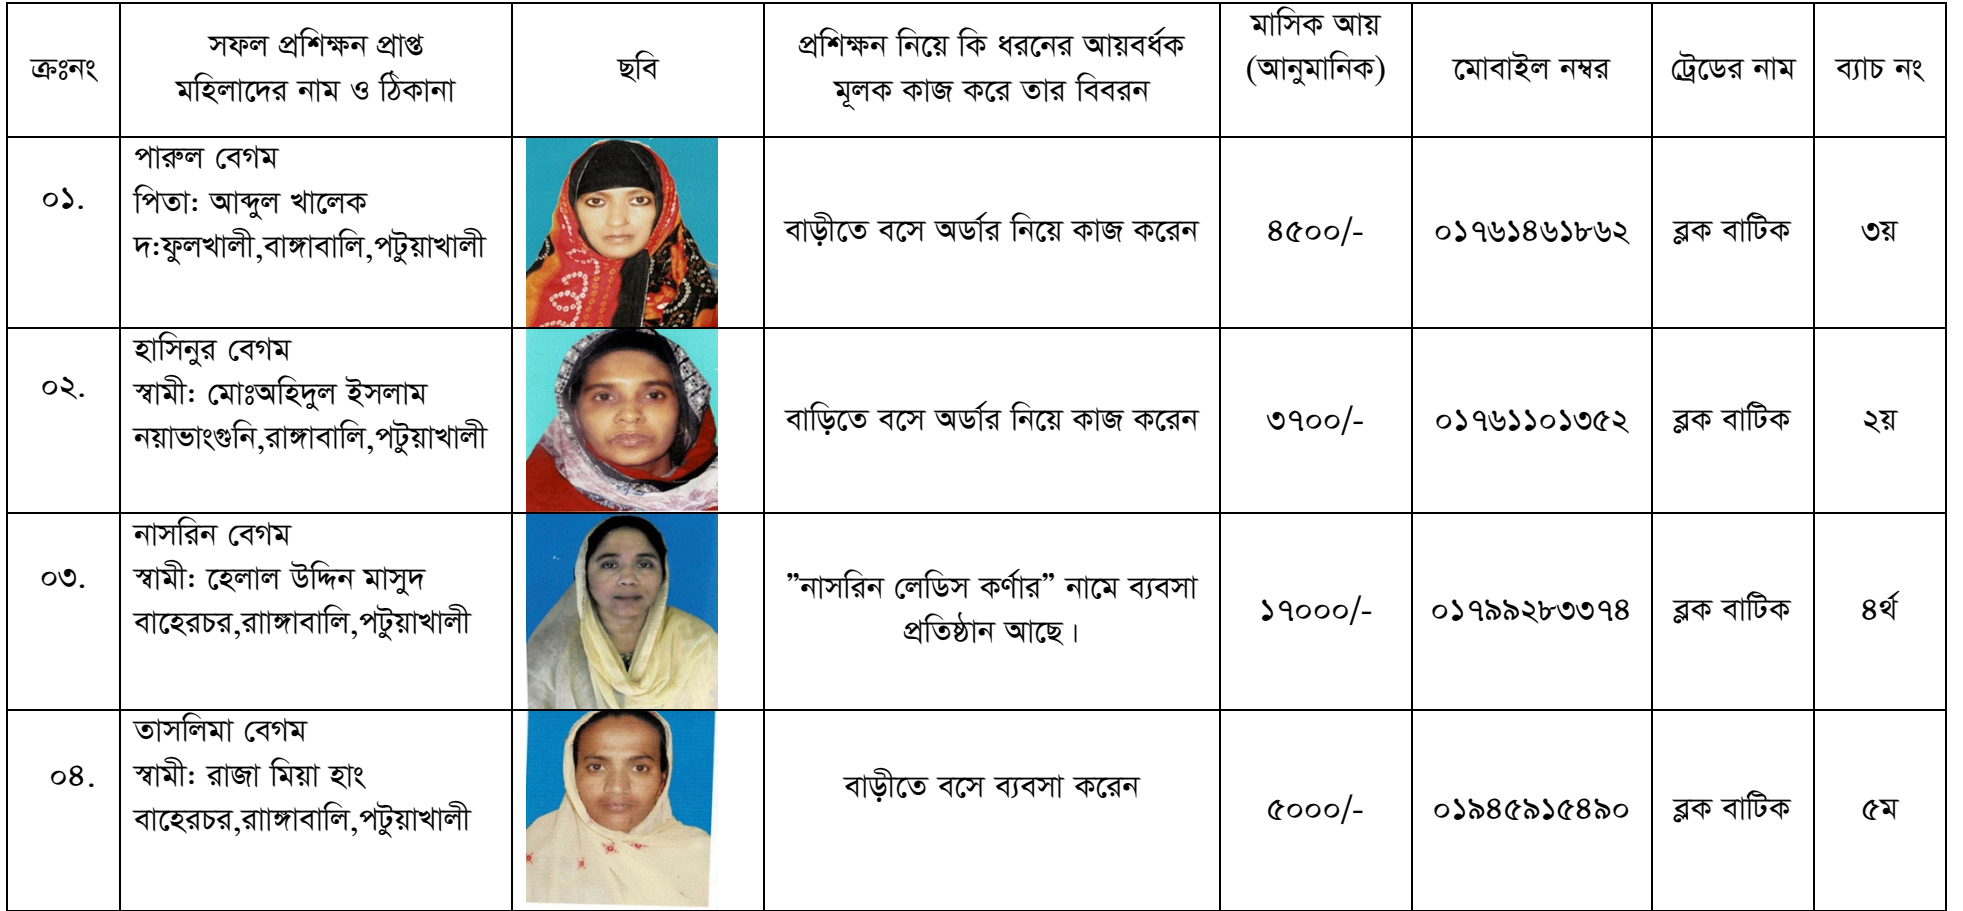 ক্রঃনং
সফল প্রশিক্ষন প্রাপ্ত
মহিলাদের নাম ও ঠিকানা
ছবি
প্রশিক্ষন নিয়ে কি ধরনের আয়বর্ধক
মূলক কাজ করে তার বিবরন
মাসিক আয়
(আনুমানিক)
মোবাইল নম্বর
ট্রেডের নাম
ব্যাচ নং
০১.
পারুল বেগম
পিতা: আব্দুল খালেক
দ:ফুলখালী,বাঙ্গাবালি,পটুয়াখালী
বাড়ীতে বসে অর্ডার নিয়ে কাজ করেন
৪৫০০/-
০১৭৬১৪৬১৮৬২
ব্লক বাটিক
৩য়
০২.
হাসিনুর বেগম
স্বামী: মোঃঅহিদুল ইসলাম
নয়াভাংগুনি,রাঙ্গাবালি,পটুয়াখালী
বাড়িতে বসে অর্ডার নিয়ে কাজ করেন
৩৭০০/-
০১৭৬১১০১৩৫২
ব্লক বাটিক
২য়
০৩.
নাসরিন বেগম
স্বামী: হেলাল উদ্দিন মাসুদ
বাহেরচর,রাাঙ্গাবালি,পটুয়াখালী
”নাসরিন লেডিস কর্ণার” নামে ব্যবসা
প্রতিষ্ঠান আছে।
১৭০০০/-
০১৭৯৯২৮৩৩৭৪
ব্লক বাটিক
৪র্থ
০৪.
তাসলিমা বেগম
স্বামী: রাজা মিয়া হাং
বাহেরচর,রাাঙ্গাবালি,পটুয়াখালী
বাড়ীতে বসে ব্যবসা করেন
৫০০০/-
০১৯৪৫৯১৫৪৯০
ব্লক বাটিক
৫ম